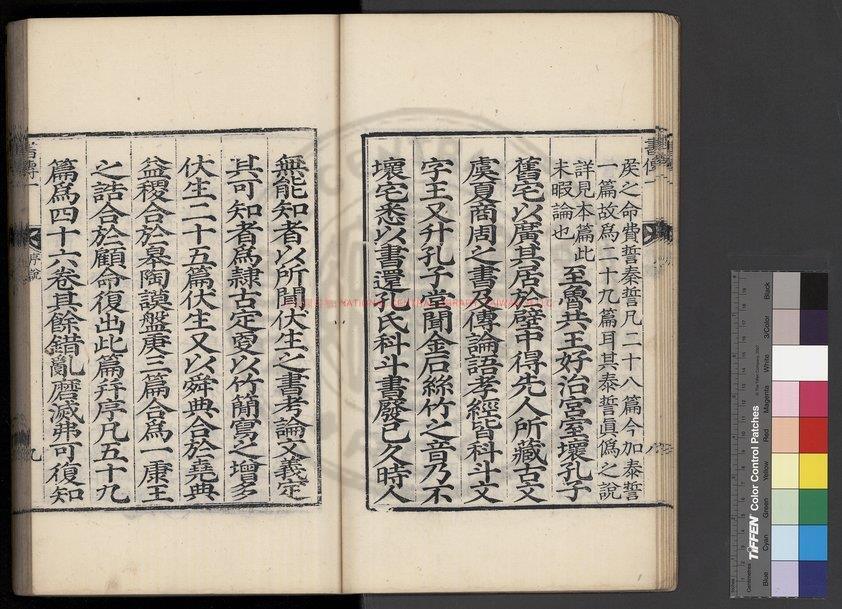 侯之命費誓秦誓凡二十八篇今加泰誓
一篇故為二十九篇耳其泰誓眞僞之說
詳見本篇此
未暇論也
至魯共王好治宮室壞孔子
舊宅以廣其居於壁中得先人所藏古文
虞夏商周之書及傳論語孝經皆科斗文
字王又升孔子堂聞金石絲竹之音乃不
壞宅悉以書還孔氏科斗書廢已久時人
無能知者以所聞伏生之書考論文義定
其可知者為隸古定更以竹簡寫之增多
伏生二十五篇伏生又以舜典合於堯典
益稷合於皋陶謨盤庚三篇合為一康王
之誥合於顧命復出此篇幷序凡五十九
篇為四十六卷其餘錯亂磨滅弗可復知
書傳一
序說
九
書傳一
八
TIFFEN Color Control Patches
Blue
Cyan
Green
Yellow
Red
Magenta
White
3/Color
Black
Centimetres